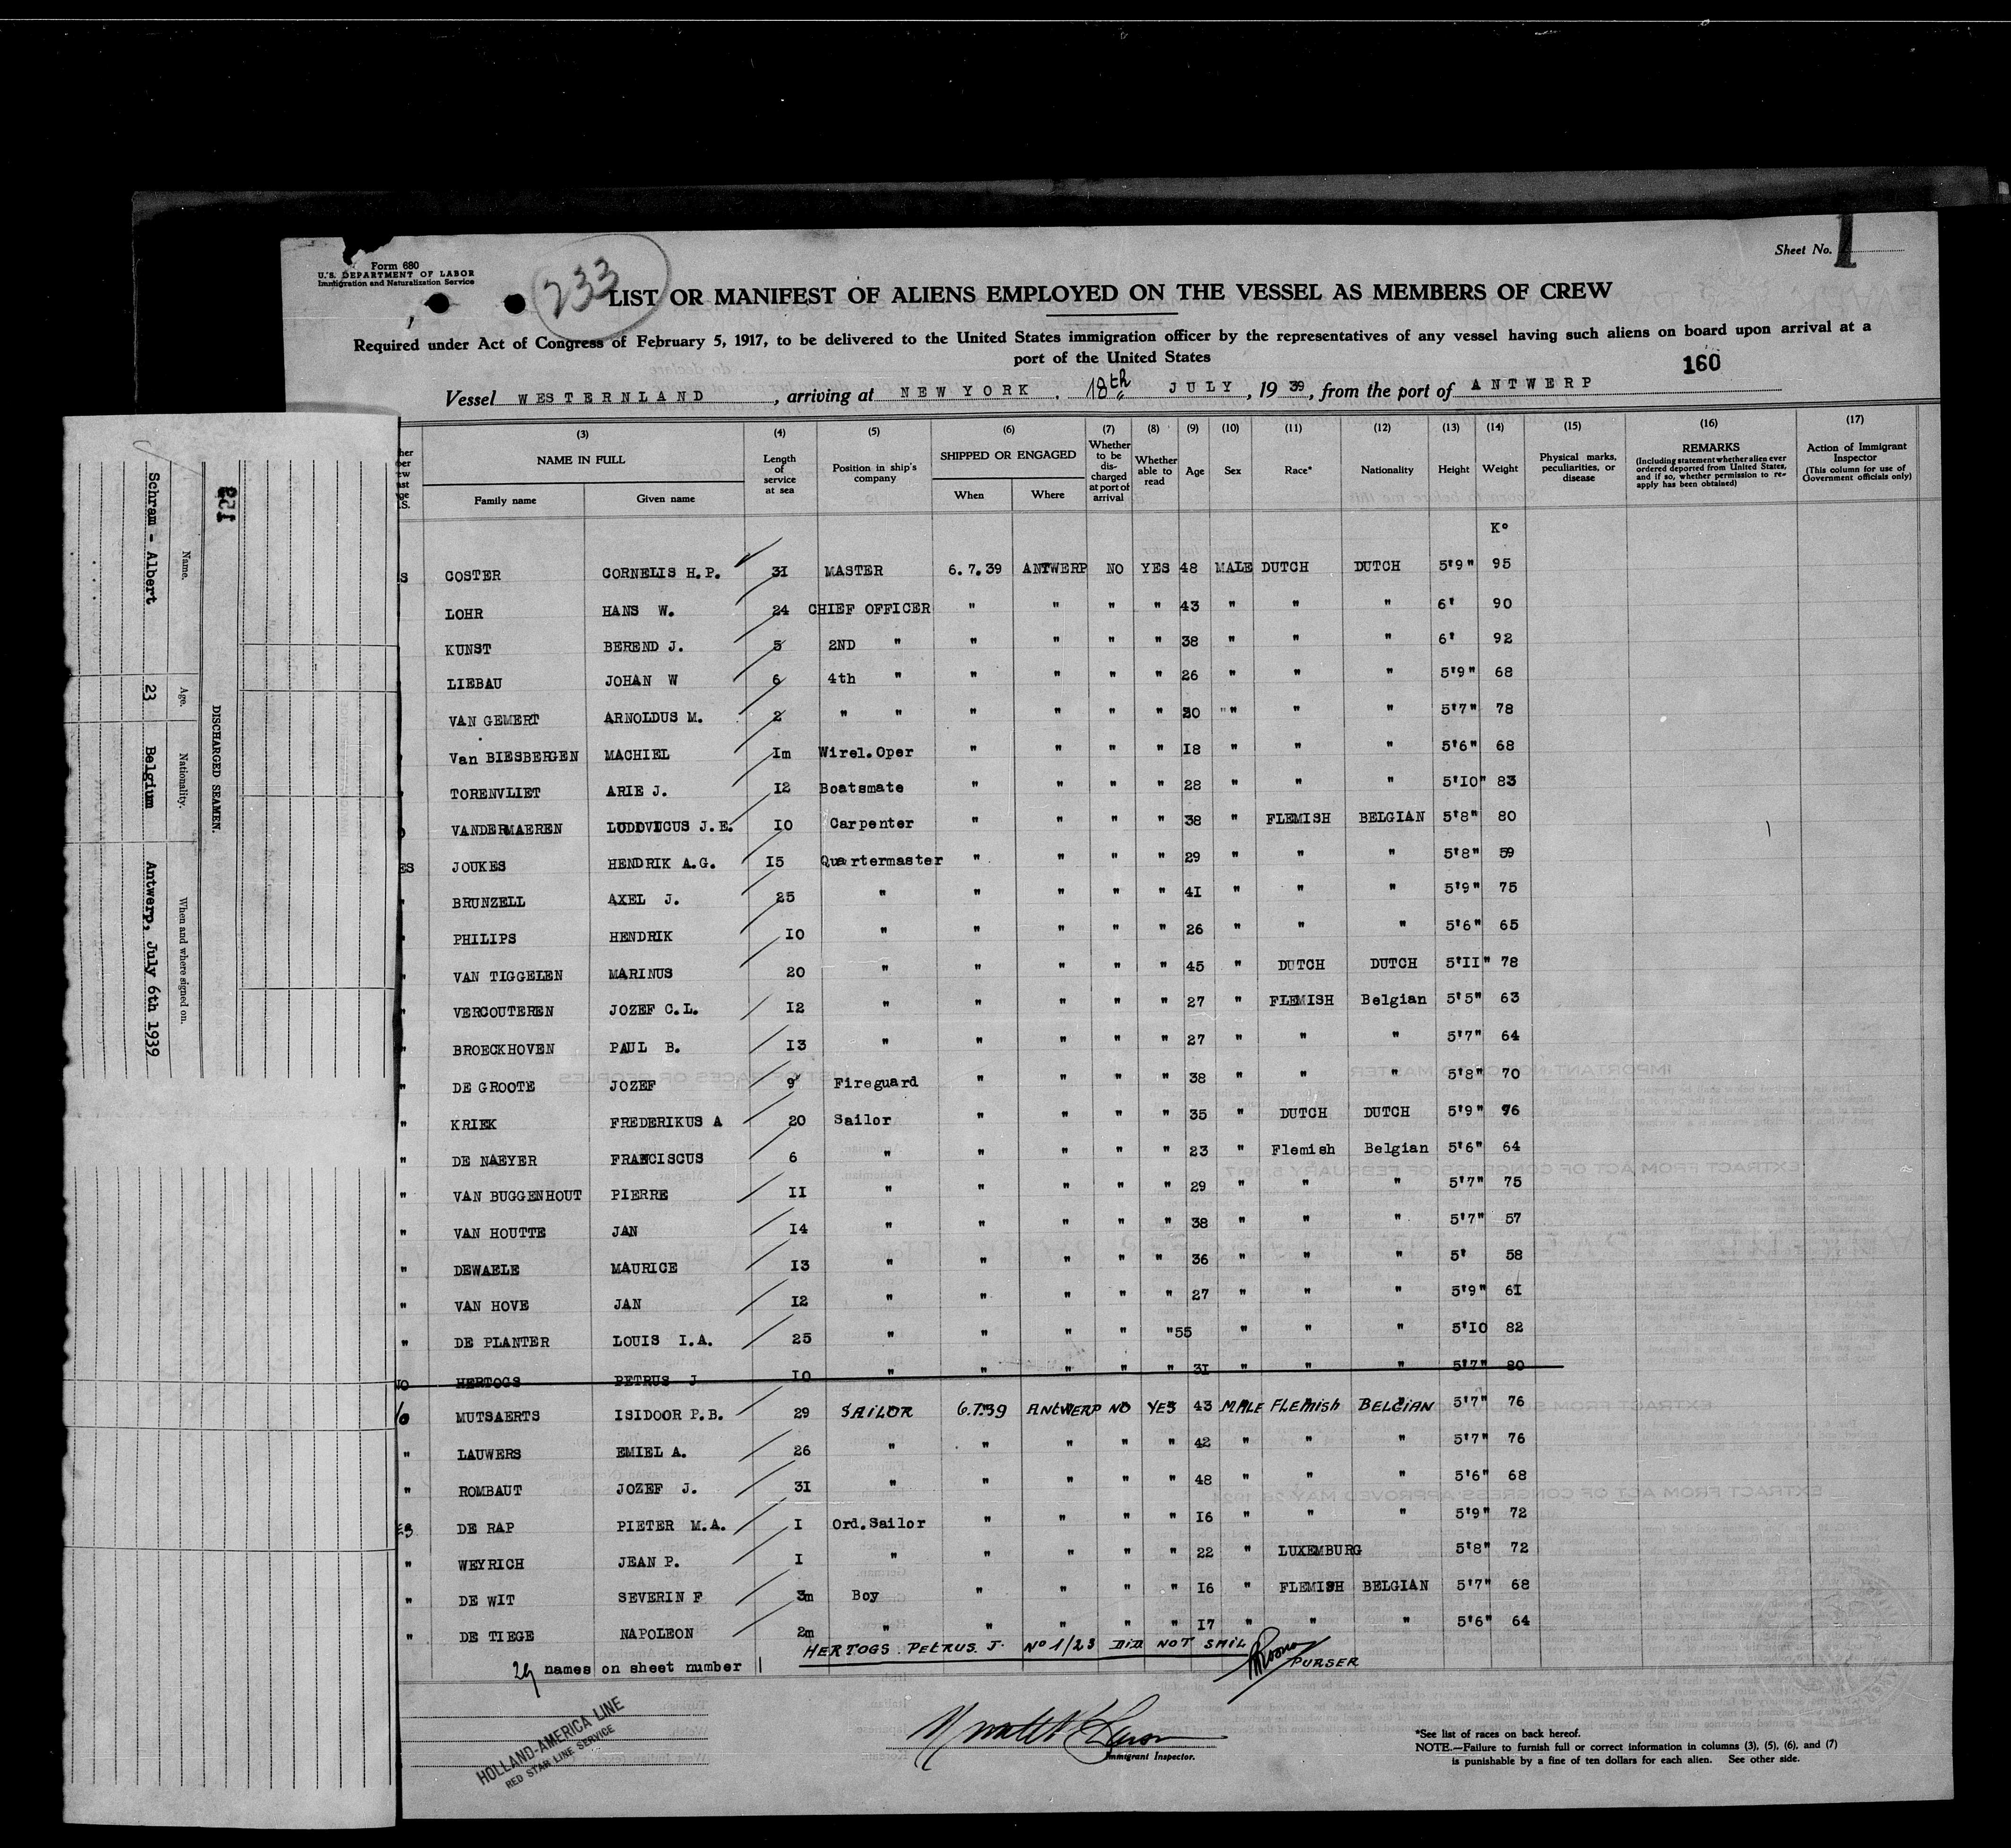 Form 680
U.S. DEPARTMENT OF LABOR
Immigration and Naturalization Service
233
Sheet No. 1
LIST OR MANIFEST OF ALIENS EMPLOYED ON THE VESSEL AS MEMBERS OF CREW
Required under Act of Congress of February 5, 1917, to be delivered to the United States immigration officer by the representatives of any vessel having such aliens on board upon arrival at a
port of the United States
160
Vessel WESTERNLAND, arriving at NEW YORK. 18th JULY, 1939, from the port of ANTWERP
(3) (4) (5) (6) (7) (8) (9) (10) (11) (12) (13) (14) (15) (16) (17)
NAME IN FULL
Family name
Given name
Length of service at sea
Position in ship's company
SHIPPED OR ENGAGED
When
Where
Whether to be dis-charged at port of arrival
Whether able to read
Age
Sex
Race*
Nationality
Height
Weight
Physical marks, peculiarities, or disease
REMARKS
(Including statement whether alien ever ordered deported from United States, and if so, whether permission to re-apply has been obtained)
Action of Immigrant Inspector
(This column for use of Government officials only)
Kº
COSTER CORNELIS H.P. 31 MASTER 6.7.39 ANTWERP NO YES 48 MALE DUTCH DUTCH 5'9" 95
LOHR HANS W. 24 CHIEF OFFICER " " " " 43 " " " 6' 90
KUNST BEREND J. 5 2ND " " " " " 38 " " " 6' 92
LIEBAU JOHAN W 6 4th " " " " " 26 " " " 5'9" 68
VAN GEMERT ARNOLDUS M. 2 " " " " " " 20 " " " 5'7" 78
Van BIESBERGEN MACHIEL Im Wirel.Oper " " " " I8 " " " 5'6" 68
TORENVLIET ARIE J. I2 Boatsmate " " " " 28 " " " 5'IO" 83
VANDERMAEREN LUDOVICUS J.E. IO Carpenter " " " " 38 " FLEMISH BELGIAN 5'8" 80
ES JOUKES HENDRIK A.G. I5 Quartermaster " " " " 29 " " " 5'8" 59
" BRUNZELL AXEL J. 25 " " " " " 4I " " " 5'9" 75
" PHILIPS HENDRIK IO " " " " " 26 " " " 5'6" 65
" VAN TIGGELEN MARINUS 20 " " " " " 45 " DUTCH DUTCH 5'II" 78
" VERCOUTEREN JOZEF C.L. I2 " " " " " 27 " FLEMISH Belgian 5'5" 63
" BROECKHOVEN PAUL B. I3 " " " " " 27 " " " 5'7" 64
" DE GROOTE JOZEF 9 Fireguard " " " " 38 " " " 5'8" 70
" KRIEK FREDERIKUS A 20 Sailor " " " " 35 " DUTCH DUTCH 5'9" 76
" DE NAEYER FRANCISCUS 6 " " " " " 23 " Flemish Belgian 5'6" 64
" VAN BUGGENHOUT PIERRE II " " " " " 29 " " " 5'7" 75
" VAN HOUTTE JAN I4 " " " " " 38 " " " 5'7" 57
" DEWAELE MAURICE I3 " " " " " 36 " " " 5' 58
" VAN HOVE JAN I2 " " " " " 27 " " " 5'9" 6I
" DE PLANTER LOUIS I.A. 25 " " " " " 55 " " " 5'IO 82
NO HERTOGS PETRUS J IO " " " " " 3I " " " 5'7" 80
MUTSAERTS ISIDOOR P.B. 29 SAILOR 6.7.39 ANTWERP NO YES 43 MALE FLEMISH BELGIAN 5'7" 76
" LAUWERS EMIEL A. 26 " " " " " 42 " " " 5'7" 76
" ROMBAUT JOZEF J. 3I " " " " " 48 " " " 5'6" 68
DE RAP PIETER M.A. I Ord.Sailor " " " " I6 " " " 5'9" 72
" WEYRICH JEAN P. I " " " " " 22 " LUXEMBURG 5'8" 72
" DE WIT SEVERIN F 3m Boy " " " " I6 " FLEMISH BELGIAN 5'7" 68
" DE TIEGE NAPOLEON 2m " " " " " I7 " " " 5'6" 64
HERTOGS. PETRUS. J. No 1/23 DID NOT SAIL
PURSER
29 names on sheet number 1
HOLLAND-AMERICA LINE
RED STAR LINE SERVICE
Immigrant Inspector.
*See list of races on back hereof.
NOTE.—Failure to furnish full or correct information in columns (3), (5), (6), and (7)
is punishable by a fine of ten dollars for each alien. See other side.
128
DISCHARGED SEAMEN.
Name. Age. Nationality. When and where signed on.
Schram - Albert 23 Belgium Antwerp, July 6th 1939